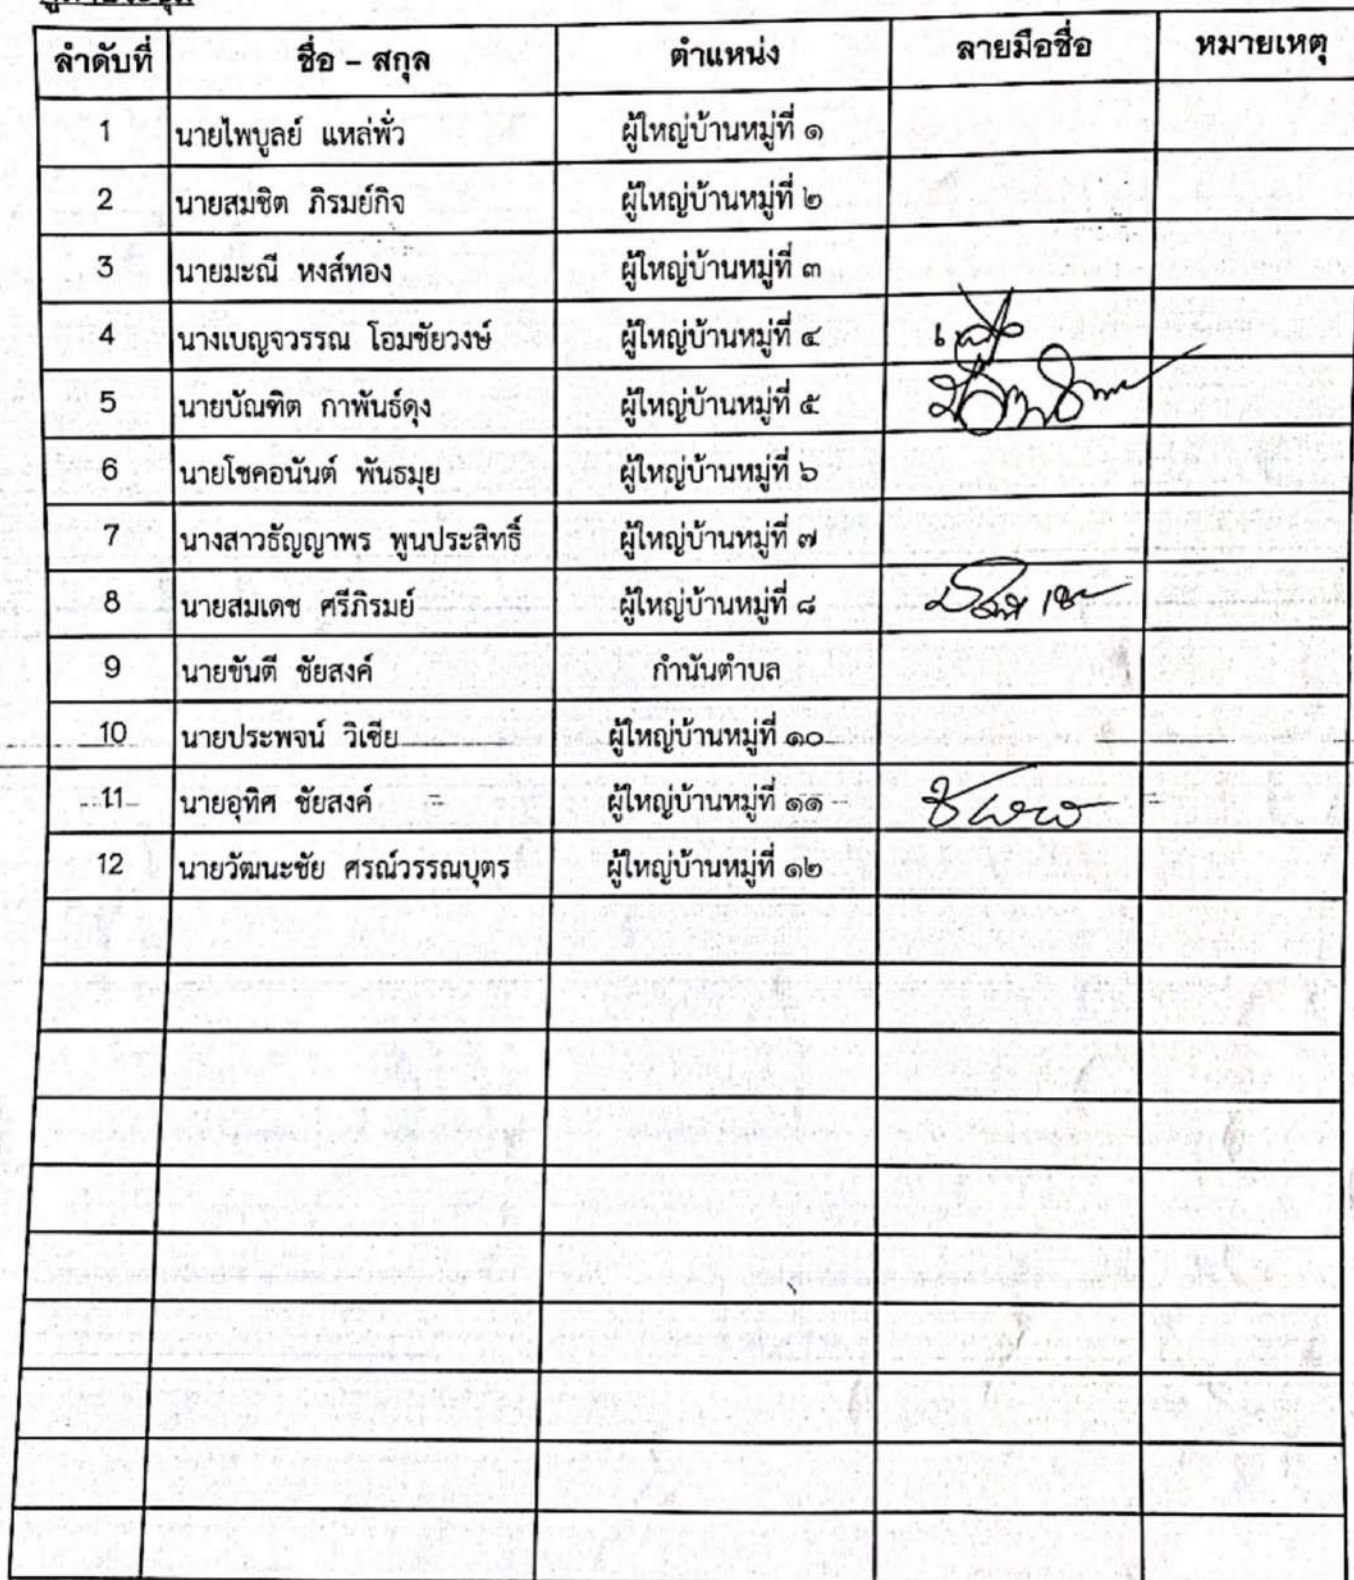 ลำดับที่ ชื่อ – สกุล ตำแหน่ง ลายมือชื่อ หมายเหตุ
1 นายไพบูลย์ แหล่พั่ว ผู้ใหญ่บ้านหมู่ที่ ๑
2 นายสมชิต ภิรมย์กิจ ผู้ใหญ่บ้านหมู่ที่ ๒
3 นายมะณี หงส์ทอง ผู้ใหญ่บ้านหมู่ที่ ๓
4 นางเบญจวรรณ โอมชัยวงษ์ ผู้ใหญ่บ้านหมู่ที่ ๔
5 นายบัณฑิต กาพันธ์ดุง ผู้ใหญ่บ้านหมู่ที่ ๕
6 นายโชคอนันต์ พันธมุย ผู้ใหญ่บ้านหมู่ที่ ๖
7 นางสาวธัญญาพร พูนประสิทธิ์ ผู้ใหญ่บ้านหมู่ที่ ๗
8 นายสมเดช ศรีภิรมย์ ผู้ใหญ่บ้านหมู่ที่ ๘
9 นายขันตี ชัยสงค์ กำนันตำบล
10 นายประพจน์ วิเชีย ผู้ใหญ่บ้านหมู่ที่ ๑๐
11 นายอุทิศ ชัยสงค์ ผู้ใหญ่บ้านหมู่ที่ ๑๑
12 นายวัฒนะชัย ศรณ์วรรณบุตร ผู้ใหญ่บ้านหมู่ที่ ๑๒